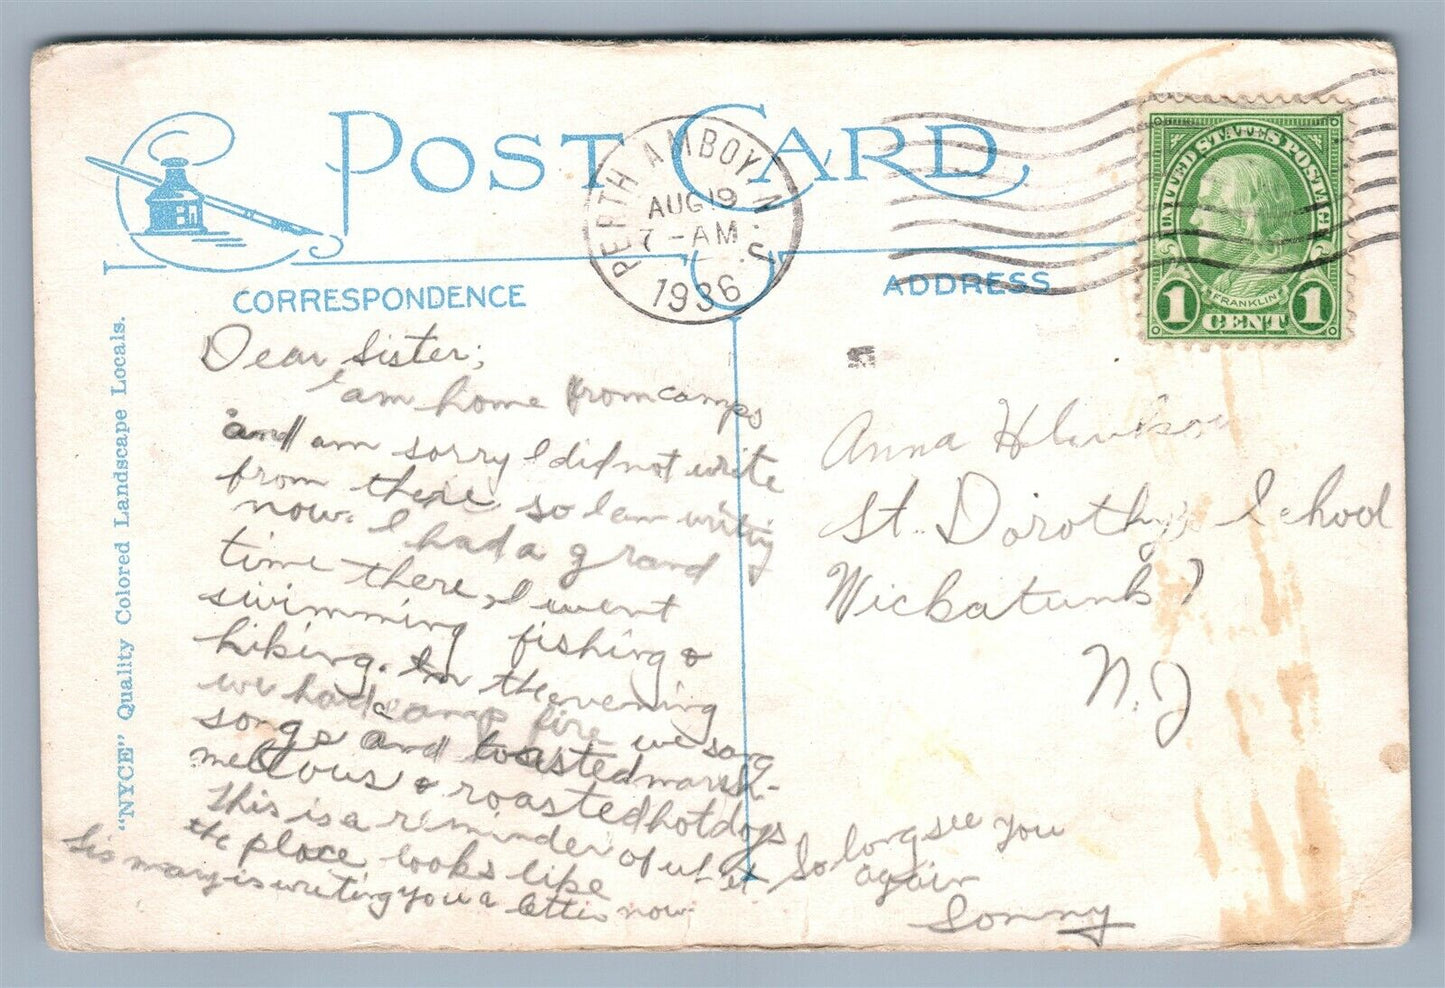 POST CARD
PERTH AMBOY, N. J.
AUG 19
7 - AM
1936
UNITED STATES POSTAGE
FRANKLIN
1 CENT 1
CORRESPONDENCE
ADDRESS
"NYCE" Quality Colored Landscape Locals.
Dear Sister;
I am home from camps
and am sorry I did not write
from there, so I am writing
now. I had a grand
time there, I went
swimming fishing &
hiking. In the evening
we had a camp fire we sang
songs and toasted marsh-
mellous & roasted hot dogs
This is a reminder of what
the place looks like
Sis mary is writing you a letter now.
So long see you
again
Sonny
Anna
St. Dorothy's School
Wickatunk
N.J